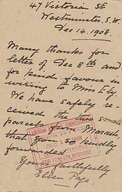 47 Victoria St
Westminster, S.W.
Dec. 14. 1908.
Many thanks for
letter of Dec 8th and
for kind favour in
writing to Miss Ely.
We have safely re-
ceived the two small
parcels from
that you so kindly
forwarded.
Yours faithfully
Ellen Page